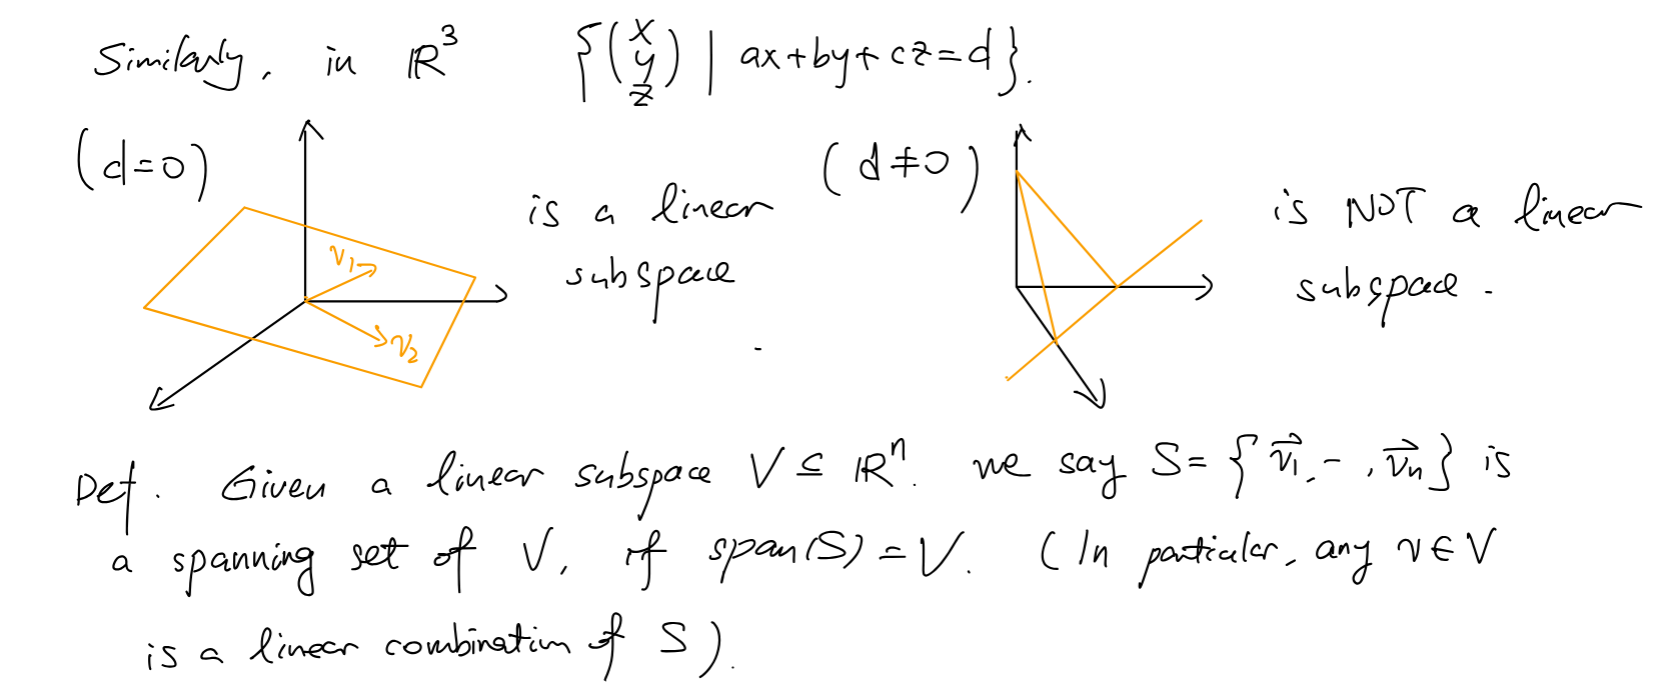 Similarly, in ℝ³ {(x y z) | ax+by+cz=d}.
(d=0) is a linear subspace.
v₁
v₂
(d≠0) is NOT a linear subspace.
Def. Given a linear subspace V ⊆ ℝⁿ. we say S = {v⃗₁, - , v⃗ₙ} is
a spanning set of V, if span(S) = V. (In particular, any v ∈ V
is a linear combination of S).